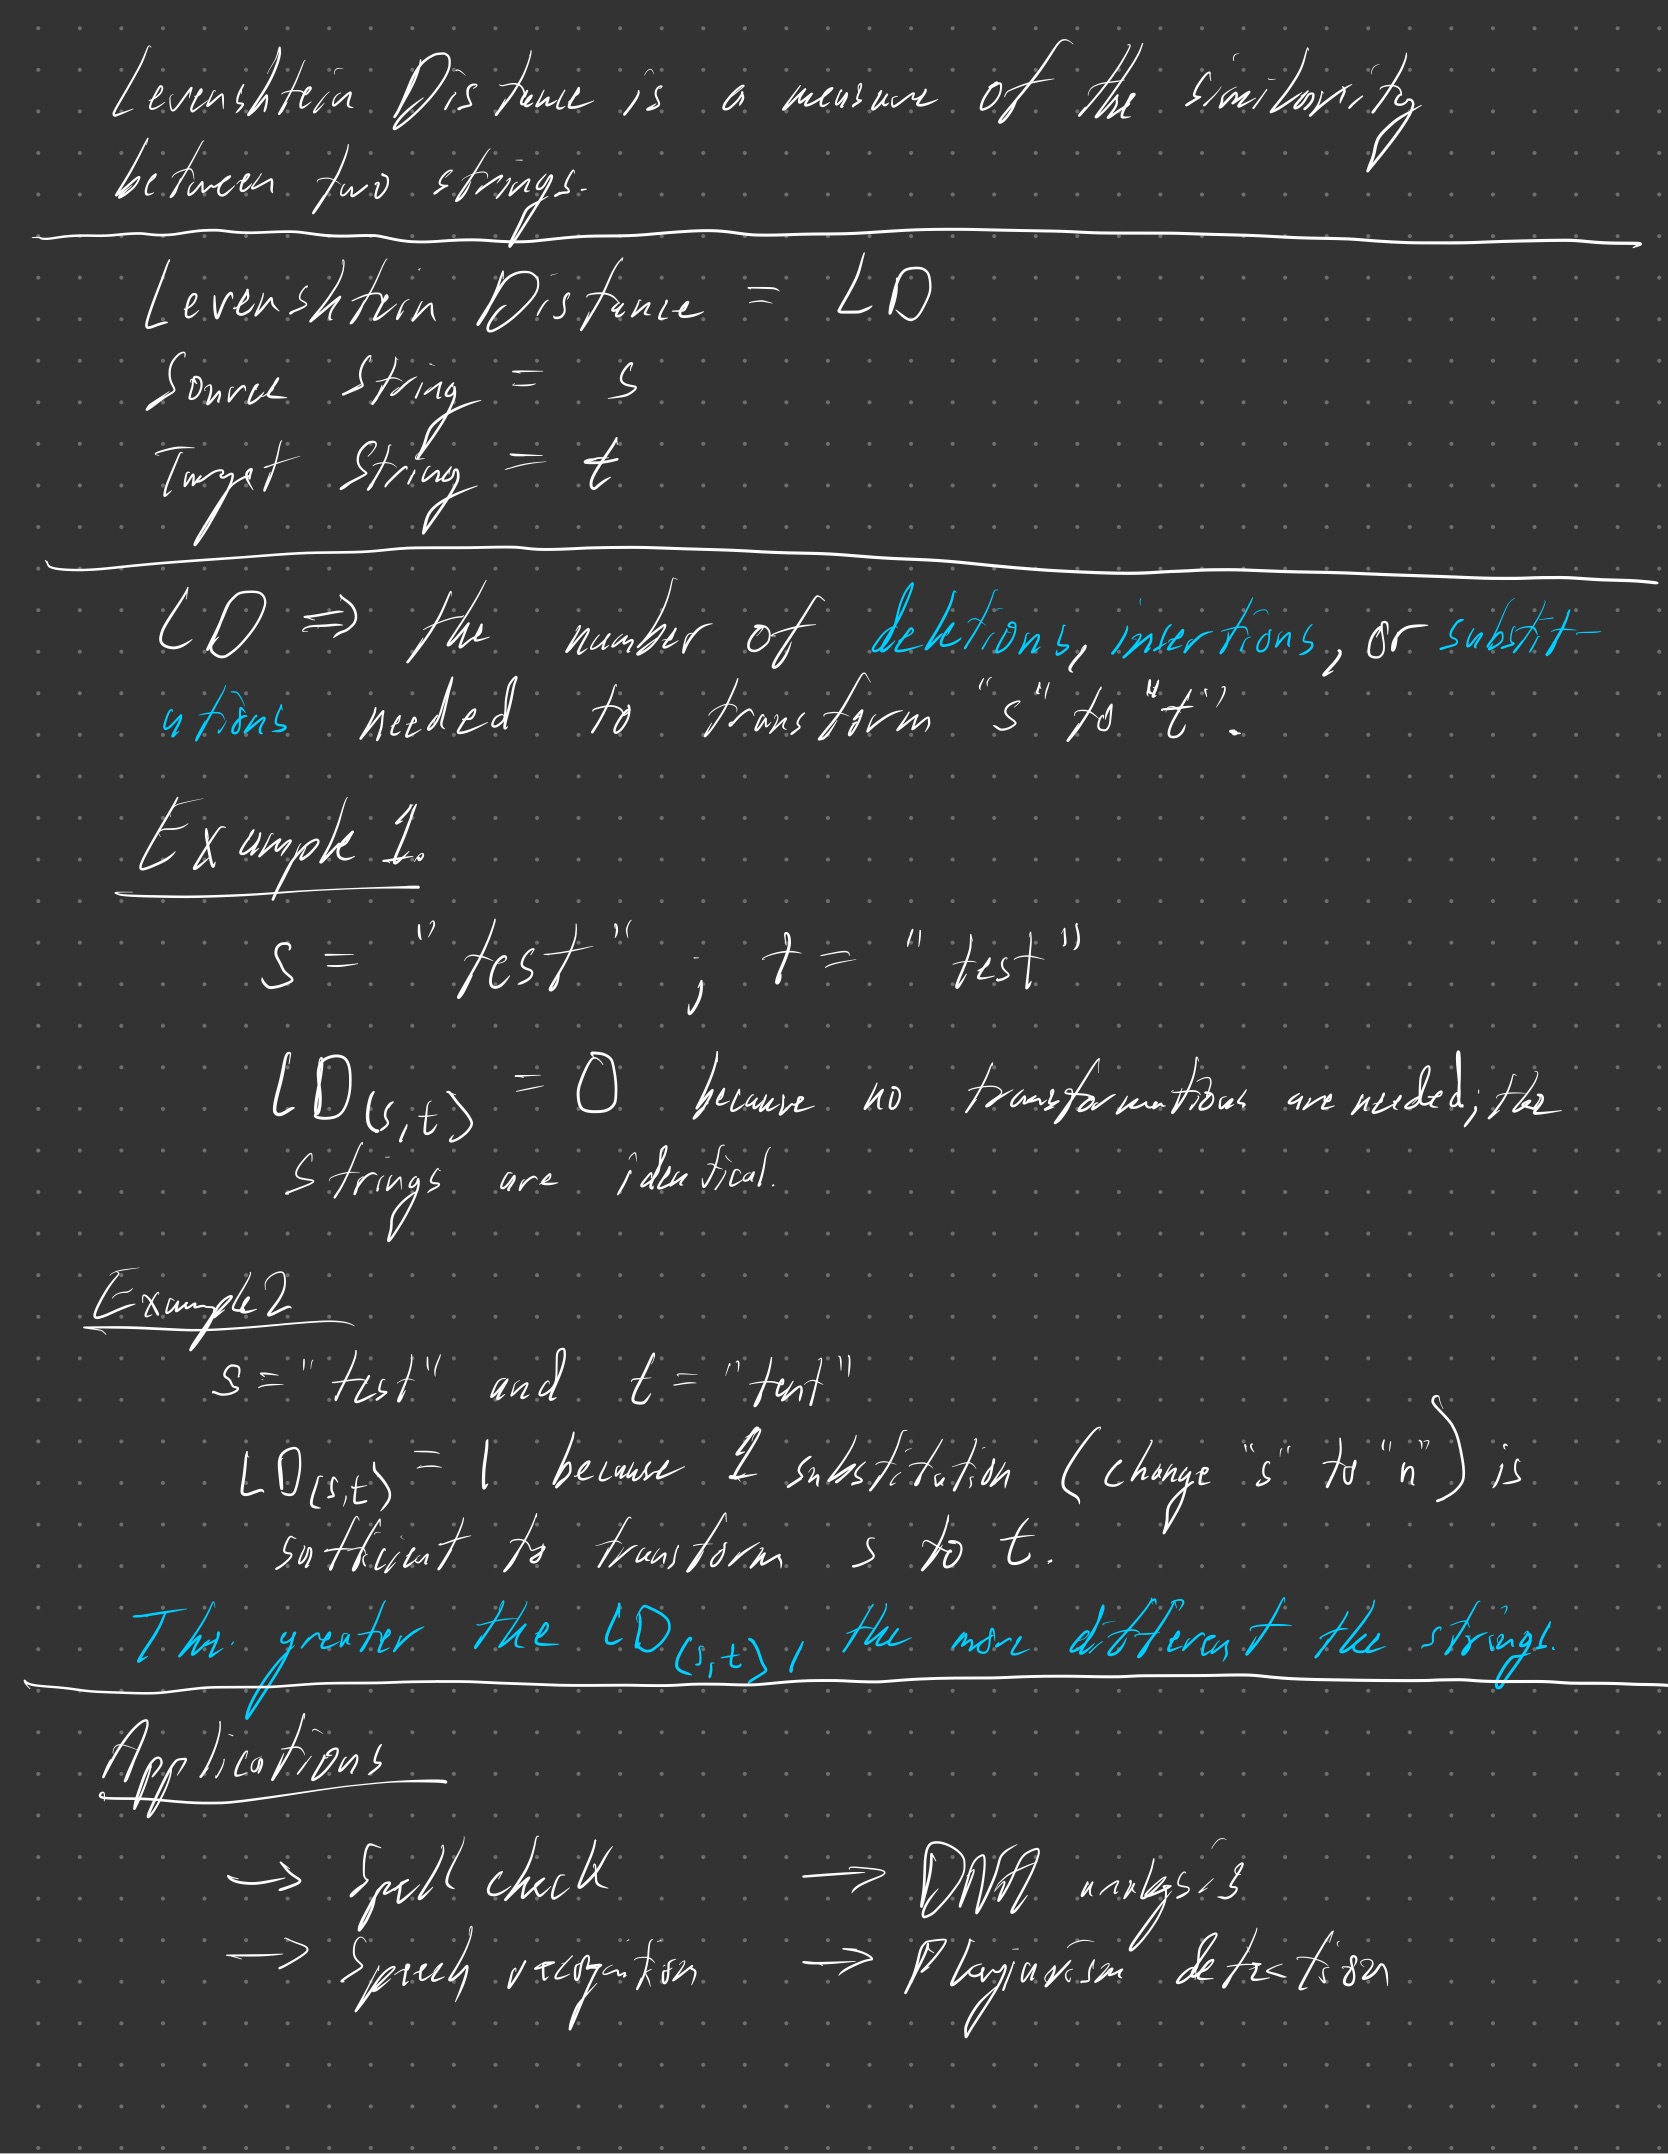 Levenshtein Distance is a measure of the similarity
between two strings.
Levenshtein Distance = LD
Source String = s
Target String = t
LD ⇒ the number of deletions, insertions, or substit-
utions needed to transform "s" to "t".
Example 1.
s = "test" ; t = "test"
LD(s,t) = 0 because no transformations are needed; the
strings are identical.
Example 2
s = "test" and t = "tent"
LD(s,t) = 1 because 1 substitution (change "s" to "n") is
sufficient to transform s to t.
The greater the LD(s,t), the more different the strings.
Applications
→ Spell check → DNA analysis
→ Speech recognition → Plagiarism detection